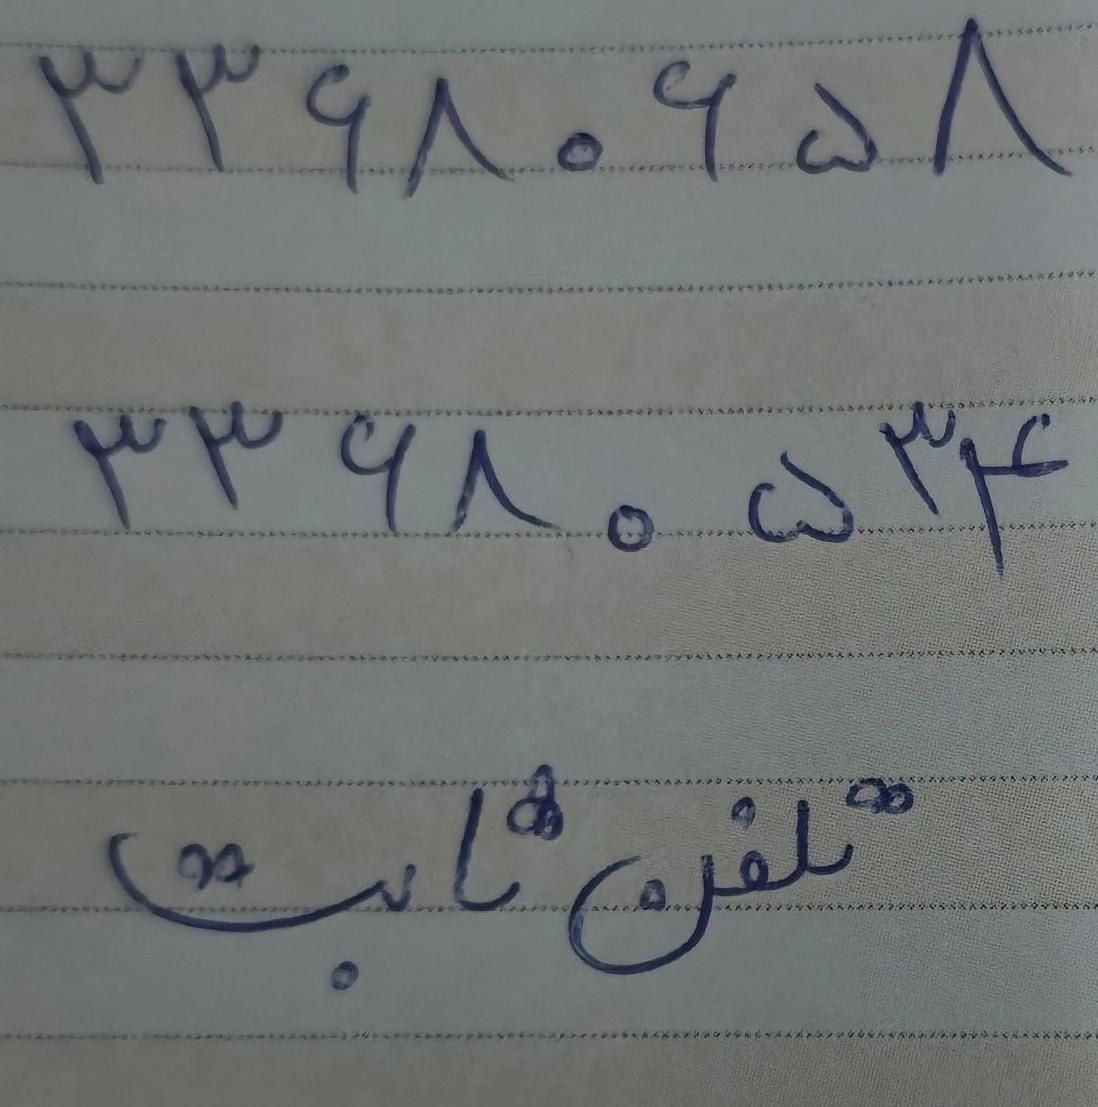 ۳۳۶۸۰۶۵۸
۳۳۶۸۰۵۳۴
تلفن ثابت